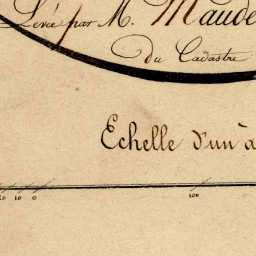 Levé par M. Maude
du Cadastre
Echelle d'un à
10 0 100